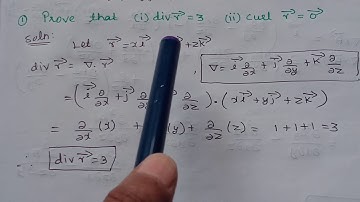 ① Prove that (i) div r⃗ = 3 (ii) curl r⃗ = 0⃗
Soln:
Let r⃗ = xi⃗ + zk⃗
div r⃗ = ∇ . r⃗ ∇ = i⃗ ∂/∂x + j⃗ ∂/∂y + k⃗ ∂/∂z
= (i⃗ ∂/∂x + j⃗ ∂/∂z) . (xi⃗ + yj⃗ + zk⃗)
= ∂/∂x (x) + (y) + ∂/∂z (z) = 1 + 1 + 1 = 3
∴ div r⃗ = 3